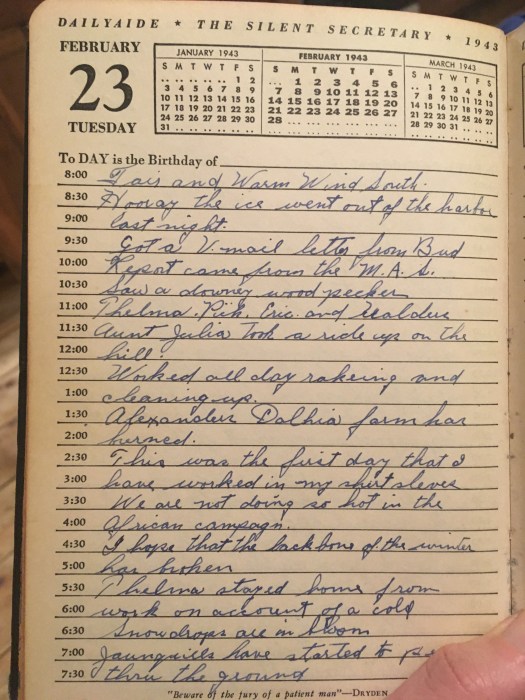 DAILYAIDE * THE SILENT SECRETARY * 1943
FEBRUARY
23
TUESDAY
JANUARY 1943
S M T W T F S
.. .. .. .. .. 1 2
3 4 5 6 7 8 9
10 11 12 13 14 15 16
17 18 19 20 21 22 23
24 25 26 27 28 29 30
31 .. .. .. .. .. ..
FEBRUARY 1943
S M T W T F S
.. 1 2 3 4 5 6
7 8 9 10 11 12 13
14 15 16 17 18 19 20
21 22 23 24 25 26 27
28 .. .. .. .. .. ..
MARCH 1943
S M T W T F S
.. 1 2 3 4 5 6
7 8 9 10 11 12 13
14 15 16 17 18 19 20
21 22 23 24 25 26 27
28 29 30 31 .. .. ..
To DAY is the Birthday of
8:00 Fair and Warm Wind South.
8:30 Hooray the ice went out of the harbor
9:00 last night.
9:30 Got a V-mail letter from Bud
10:00 Report came from the M. A. S.
10:30 Saw a downey wood pecker
11:00 Thelma, Eric, and
11:30 Aunt Julia Took a ride up on the
12:00 hill.
12:30 Worked all day rakeing and
1:00 cleaning up.
1:30 Alexanders Dalhia farm has
2:00 burned.
2:30 This was the first day that I
3:00 have worked in my shirt sleves
3:30 We are not doing so hot in the
4:00 African campagn.
4:30 I hope that the back bone of the winter
5:00 has broken
5:30 Thelma stayed home from
6:00 work on account of a cold
6:30 Snowdrops are in bloom
7:00 Jaunquills have started to
7:30 thru the ground
"Beware of the fury of a patient man"—DRYDEN